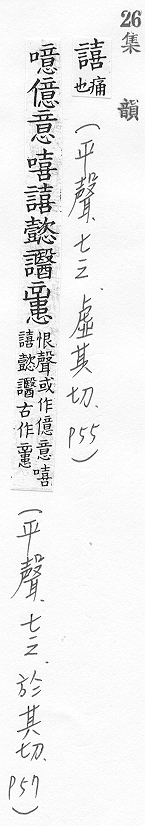 26 集韻
譆 痛也(平聲、七之、虛其切、P55)
噫億意嘻譆懿 恨聲或作億意嘻譆懿 古作 (平聲、七之、於其切、P57)